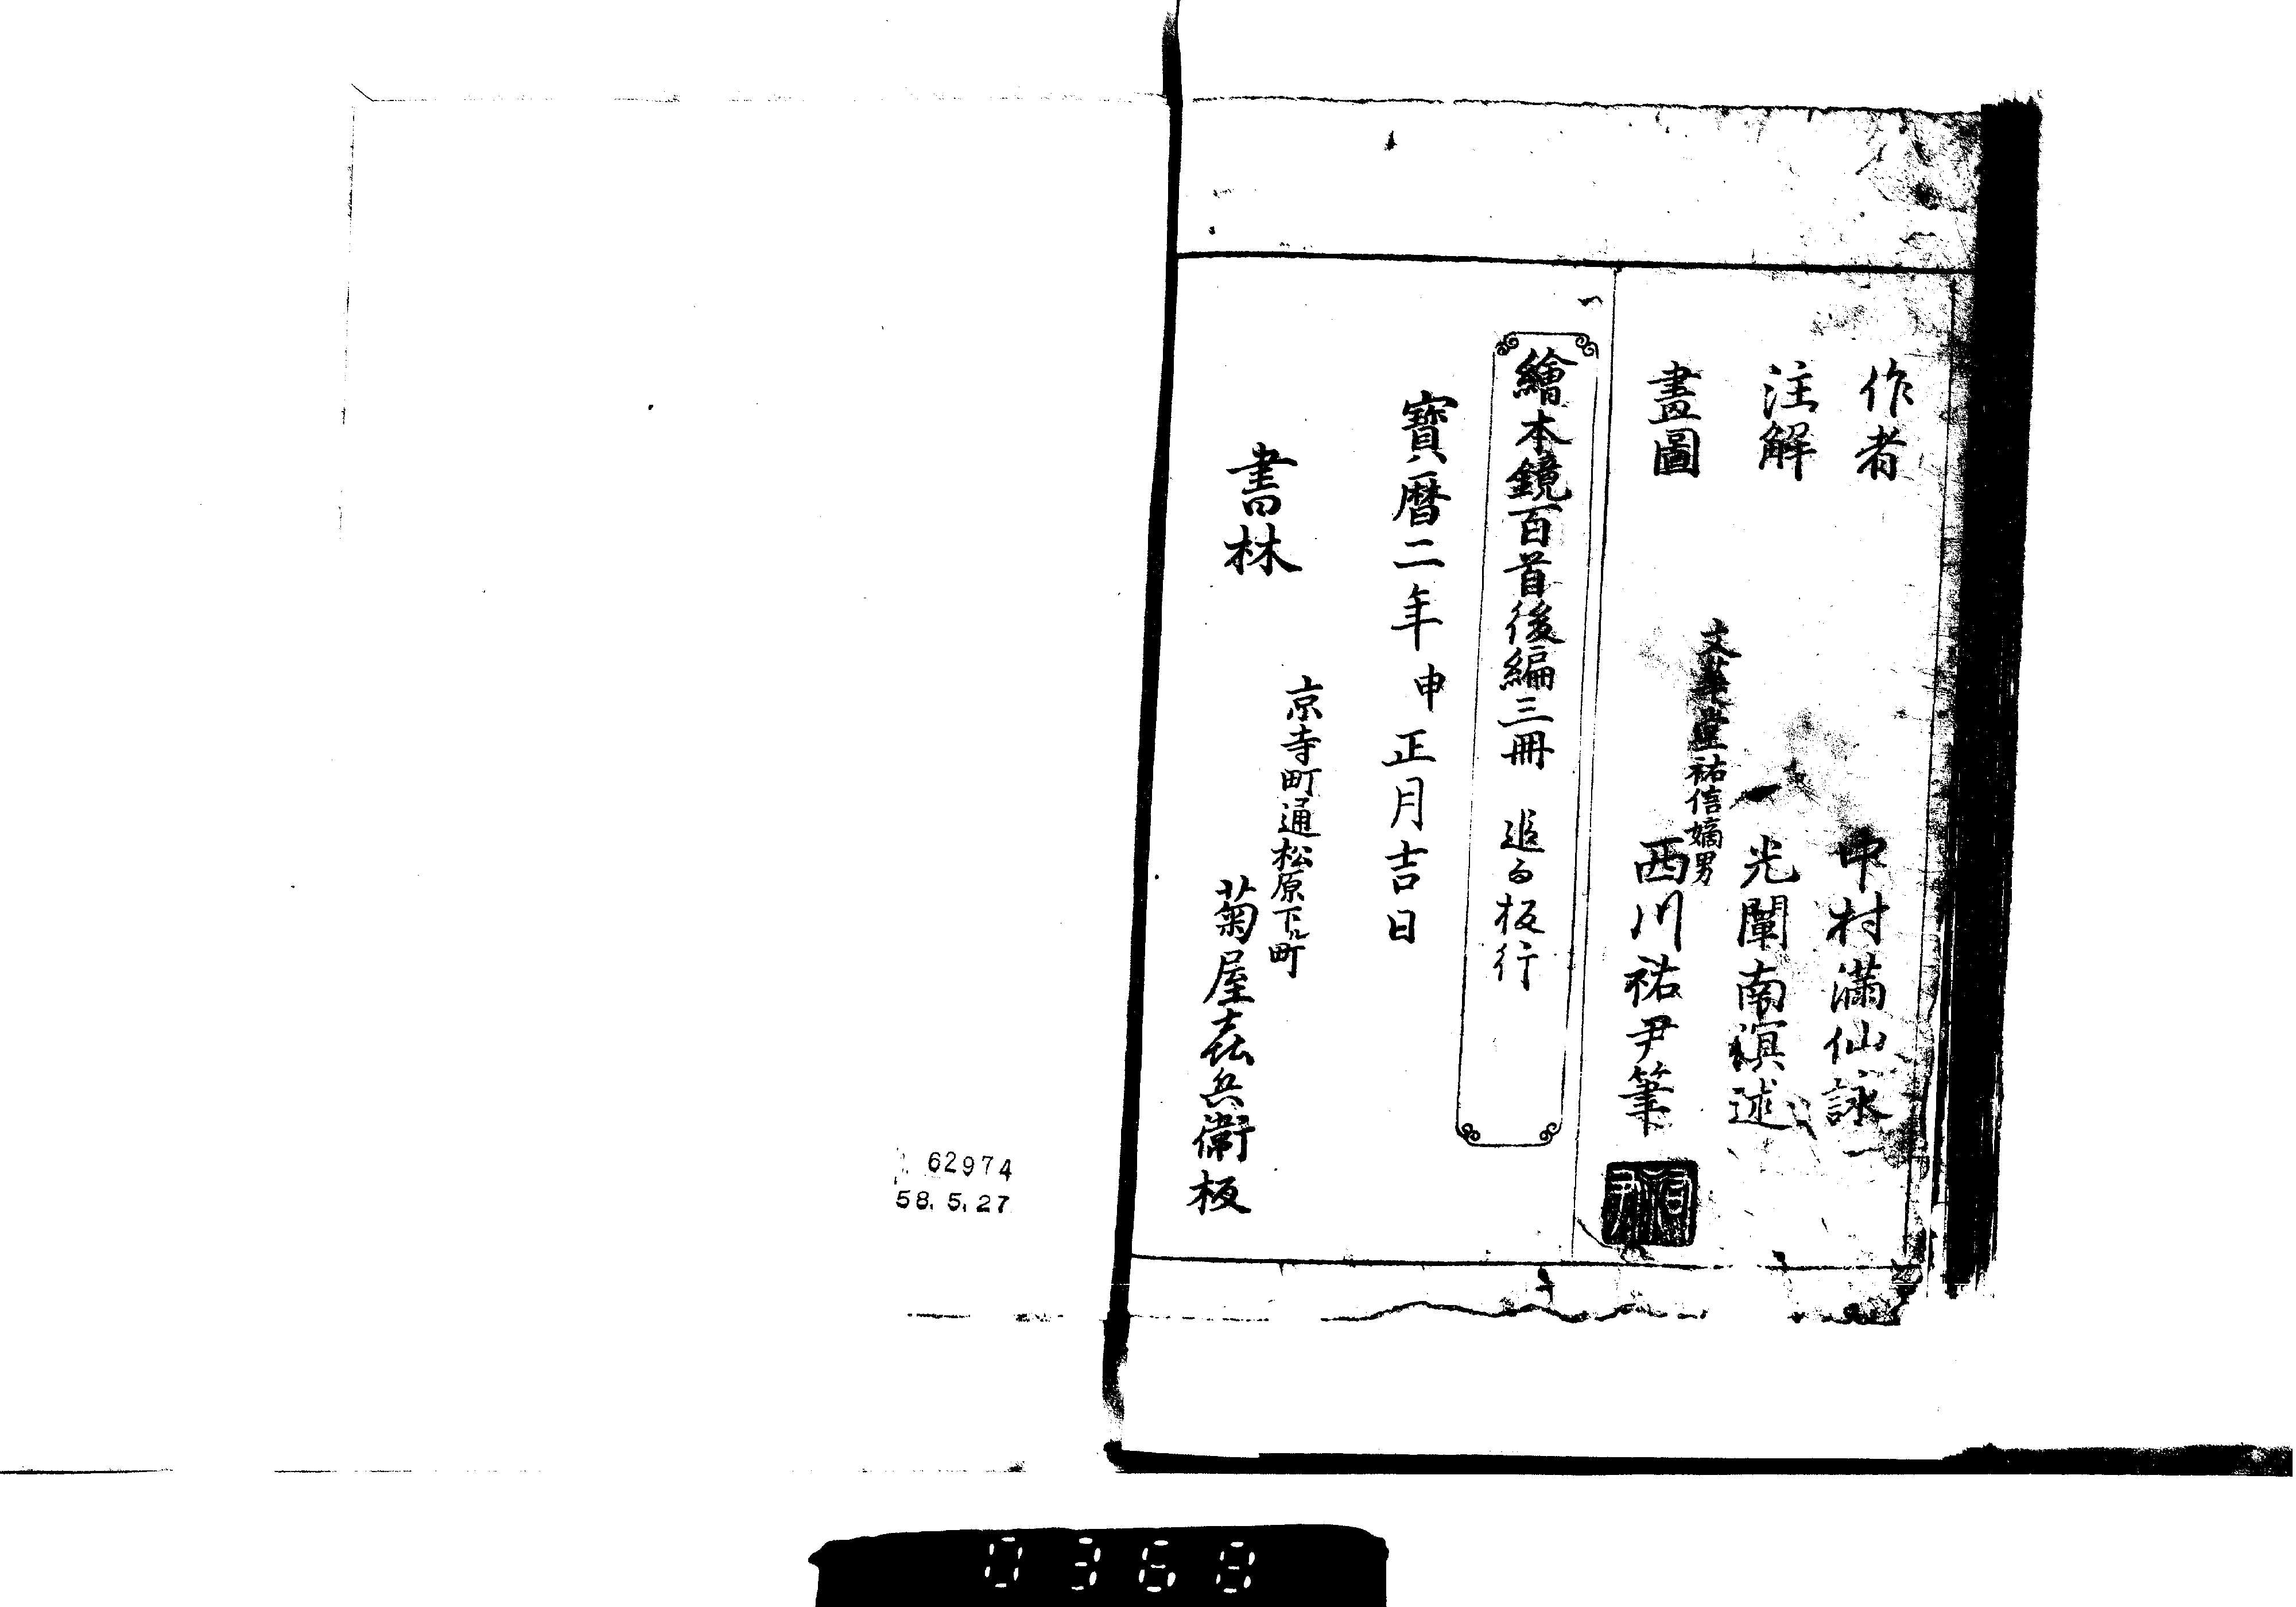 作者 中村満仙詠
注解 光闡南溟述
畫圖 文華堂祐信嫡男 西川祐尹筆
繪本鏡百首後編三冊 追而板行
寶暦二年申正月吉日
書林 京寺町通松原下ル町
菊屋㐂兵衛板
62974
58.5.27
0368